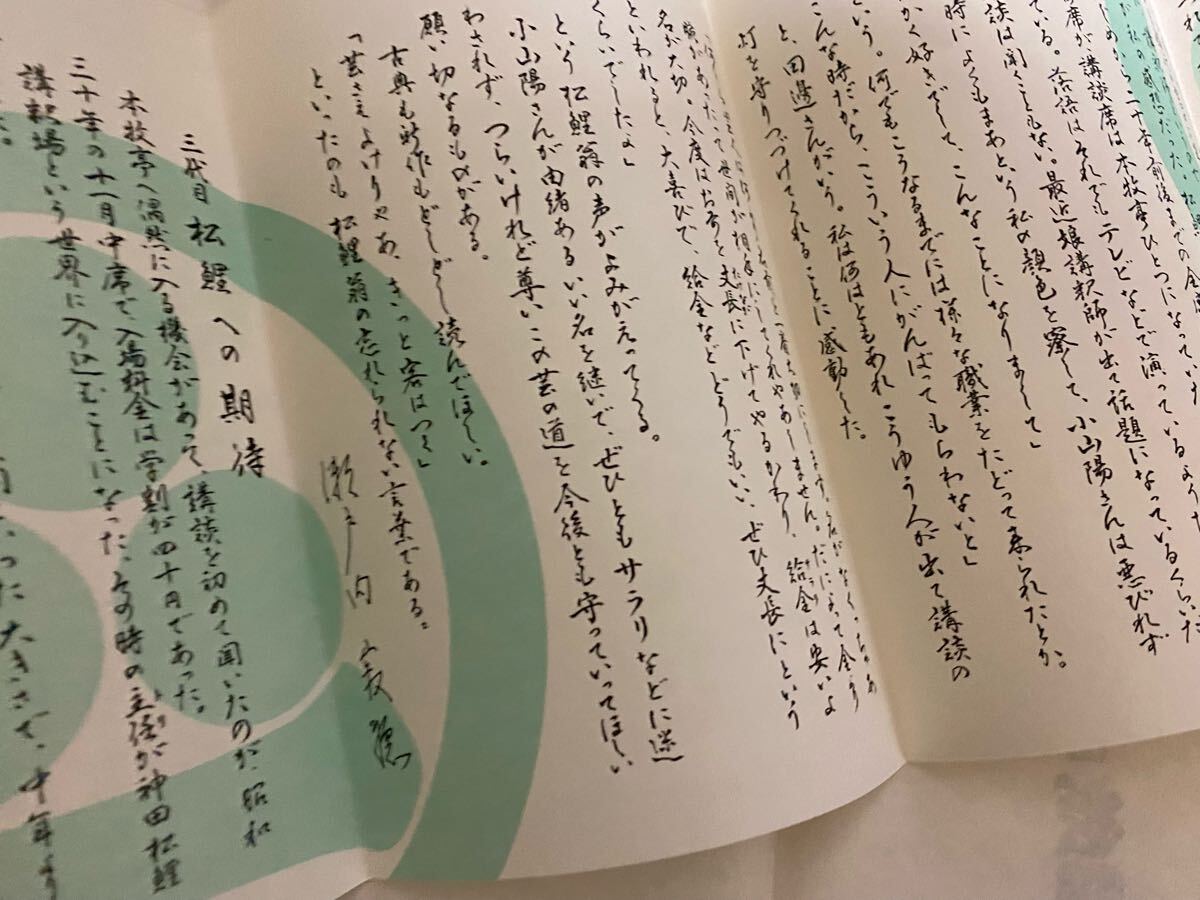 じめから二十年前後までの全盛
席が、講談席は本牧亭ひとつになっていた
ている。落語はそれでもテレビなどで演っているよりだ
談は聞くこともない。最近娘講釈師が出て話題になっているくらいだ
時によくもまあという私の顔色を察して、小山陽さんは悪びれず
かく好きでして、こんなことになりまして」
という。何でもこうなるまでには様々な職業をたどって来られたとか。
こんな時だから、こういう人にがんばってもらわないと」
と、田辺さんがいう。私は何はともあれこうゆう人が出て講談の
灯を守りつづけてくれることに感動した。
があったって世間が相手にしてくれやあしません。
名が大切。今度はおあを丈長に下げてやるかわり、給金は安いよ
といわれると、大喜びで、給金などどうでもいい、ぜひ丈長にという
くらいでしたよ」
という松鯉翁の声がよみがえってくる。
小山陽さんが由緒あるいい名を継いで、ぜひともサラリなどに迷
わされず、つらいけれど尊いこの芸の道を今後とも守っていってほしい
願い切なるものがある。
古典も新作もどしどし読んでほしい。
「芸さえよけりゃあ、きっと客はつく」
といったのも松鯉翁の忘れられない言葉である。
瀬戸内寂聴
三代目 松鯉への期待
本牧亭へ偶然に入る機会があって講談を初めて聞いたのが、昭和
三十年の十一月中席で、入場料金は学割が四十円であった。
講釈場という世界に入り込むことになった、その時の主任が神田松鯉
った大きさで、中年より